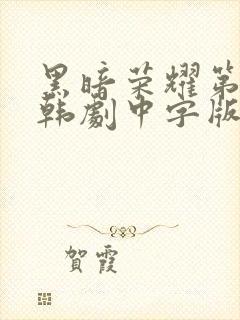 黑暗荣耀第
韩劇中字版
賀霞